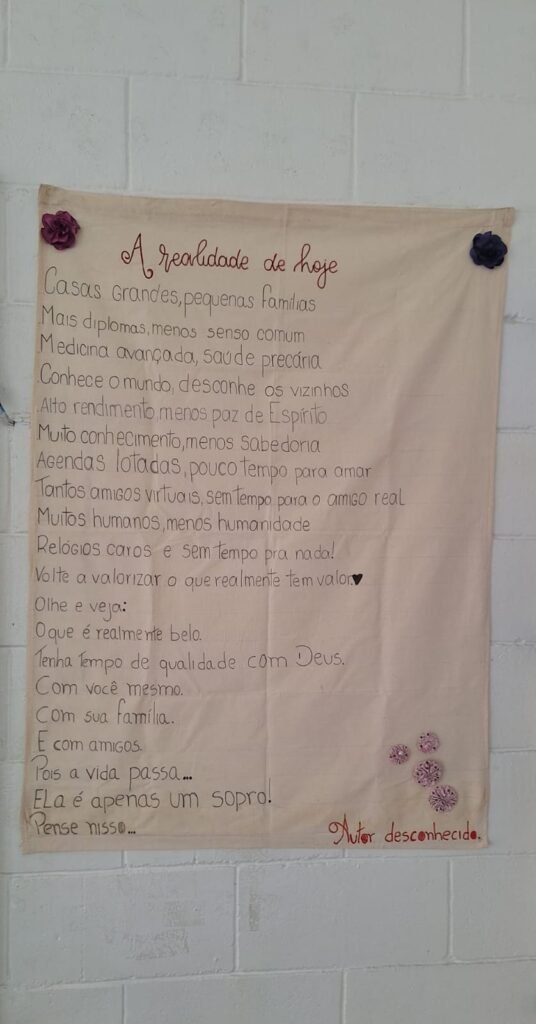 A realidade de hoje
Casas Grandes, pequenas famílias
Mais diplomas, menos senso comum
Medicina avançada, saúde precária
Conhece o mundo, desconhe os vizinhos
Alto rendimento, menos paz de Espírito
Muito conhecimento, menos sabedoria
Agendas lotadas, pouco tempo para amar
Tantos amigos virtuais, sem tempo para o amigo real
Muitos humanos, menos humanidade
Relógios caros e sem tempo pra nada!
Volte a valorizar o que realmente tem valor.♥
Olhe e veja:
O que é realmente belo.
Tenha tempo de qualidade com Deus.
Com você mesmo.
Com sua família.
E com amigos.
Pois a vida passa...
Ela é apenas um sopro!
Pense nisso...
Autor desconhecido.